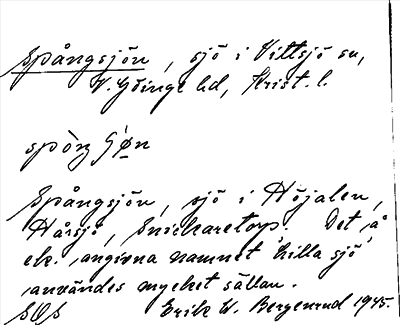 Spångsjön, sjö i Vittsjö sn,
V. Göinge hd, Krist. l.
Spångsjön, sjö i Höjalen,
Hårsjö, Snickaretorp. Det å
ek. angivna namnet, Lilla sjö,
användes mycket sällan.
SOS Erik W. Bergenrud 1945.